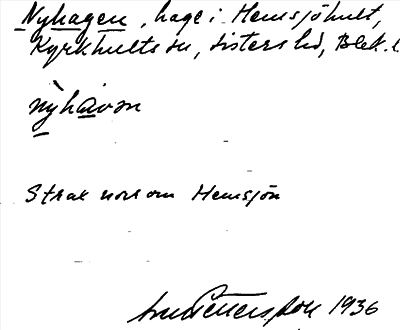 Nyhagen, hage i Hemsjöhult,
Kyrkhults sn, Listers hd, Blek. l
nỳhàvən
Strax norr om Hemsjön
Pettersson 1936